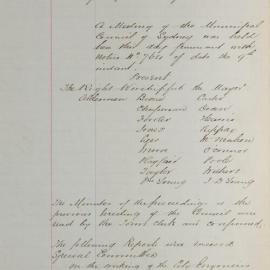 A Meeting of the Municipal
Council of Sydney was held
here this day pursuant with
Notice No. 764 of date the 9th
instant.
Present
The Right Worshipful the Mayor
Aldermen
Chapman Dean
Fowler Harris
Ives Kippax
Lees McMahon
Moore O'Connor
Playfair Poole
Taylor Withers
Wm Young J. D. Young
The Minutes of the proceedings of the
previous Meeting of the Council were
read by the Town Clerk and confirmed.
The following Reports were received
Special Committee
on the working of the City Engineers